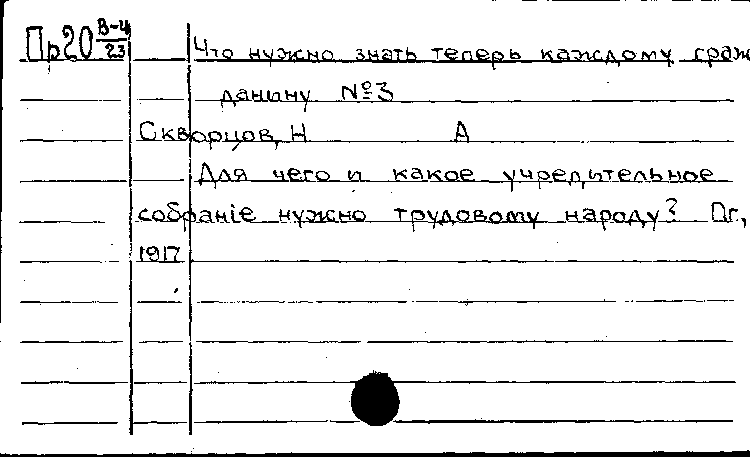 Пр20 В-4/23
Что нужно знать теперь каждому граж
данину №3
Скворцов, Н А
Для чего и какое учредительное
собранiе нужно трудовому народу? Пг.,
1917